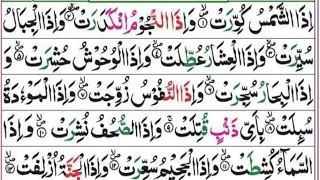 اِذَا الشَّمْسُ كُوِّرَتْ ۝۱ وَاِذَا النُّجُوْمُ انْكَدَرَتْ ۝۲ وَاِذَا الْجِبَالُ
سُيِّرَتْ ۝۳ وَاِذَا الْعِشَارُ عُطِّلَتْ ۝۴ وَاِذَا الْوُحُوْشُ حُشِرَتْ ۝۵ وَ
اِذَا الْبِحَارُ سُجِّرَتْ ۝۶ وَاِذَا النُّفُوْسُ زُوِّجَتْ ۝۷ وَاِذَا الْمَوْءٗدَةُ
سُئِلَتْ ۝۸ بِاَيِّ ذَنْۢبٍ قُتِلَتْ ۝۹ وَاِذَا الصُّحُفُ نُشِرَتْ ۝۱۰ وَاِذَا
السَّمَآءُ كُشِطَتْ ۝۱۱ وَاِذَا الْجَحِيْمُ سُعِّرَتْ ۝۱۲ وَاِذَا الْجَنَّةُ اُزْلِفَتْ ۝۱۳